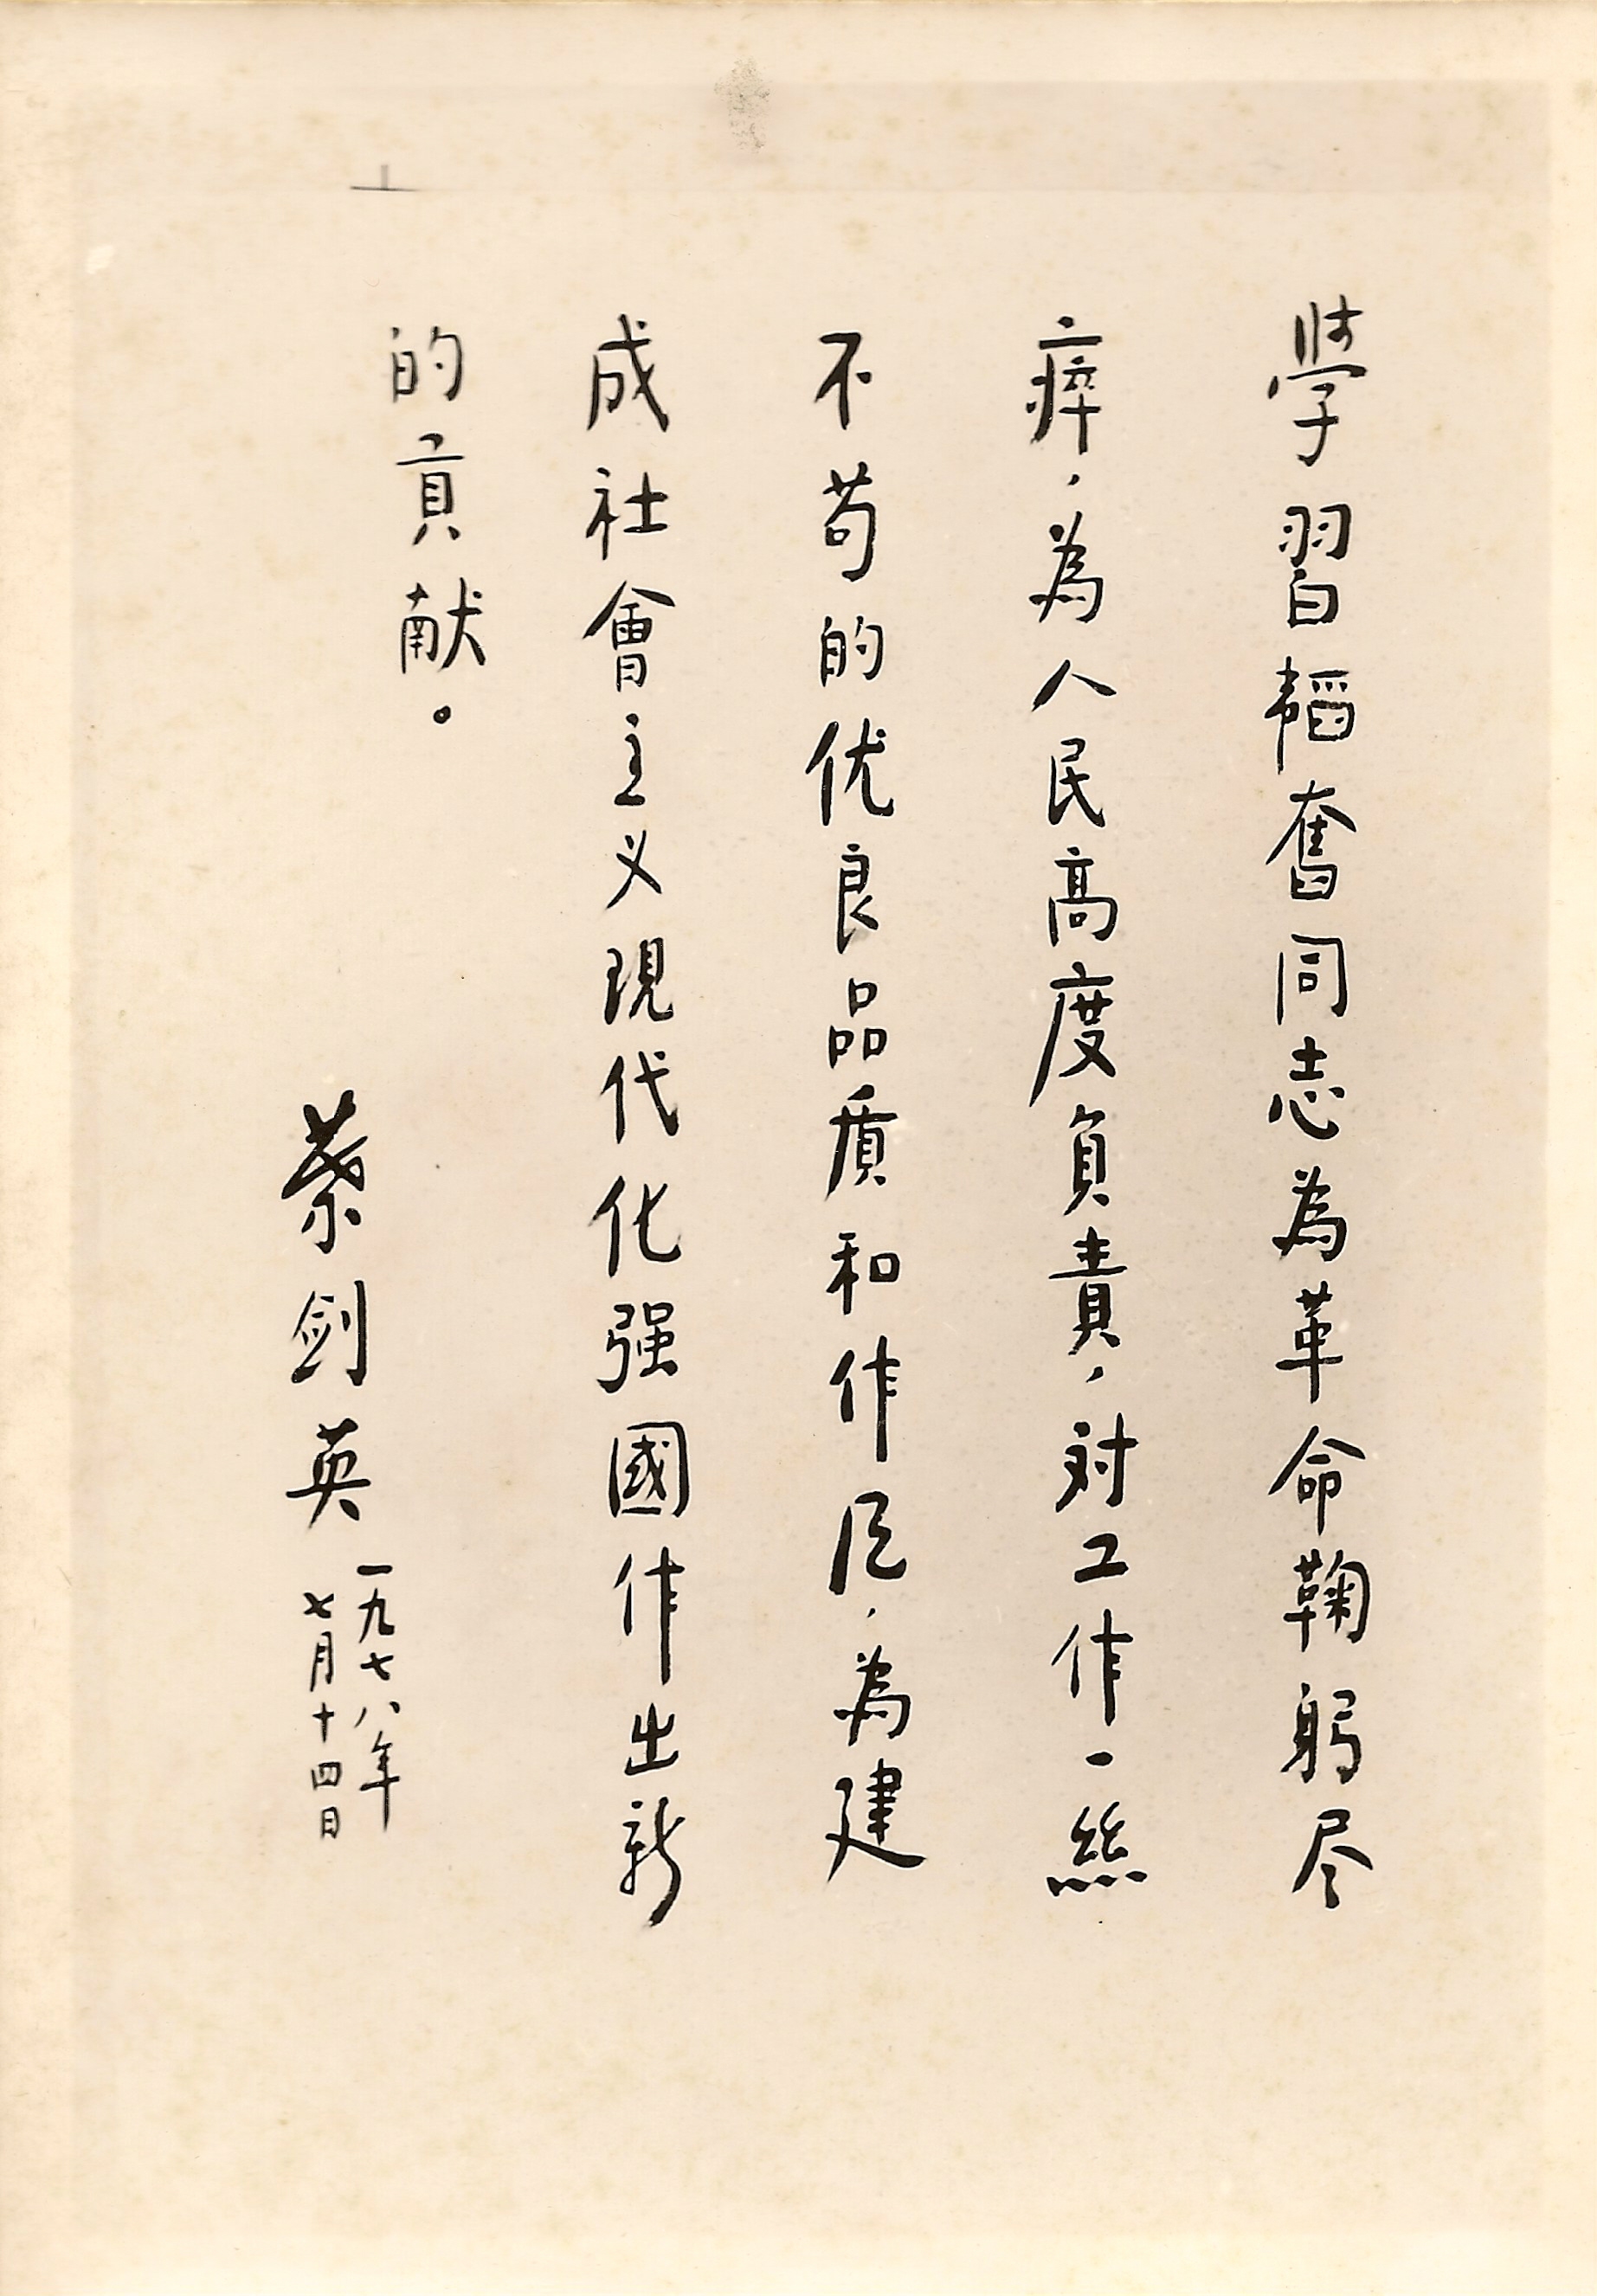 學習韬奮同志為革命鞠躬尽
瘁，為人民高度負責，对工作一絲
不苟的优良品质和作风，為建
成社會主义現代化强國作出新
的貢献。
蔡剑英
一九七八年
七月十四日